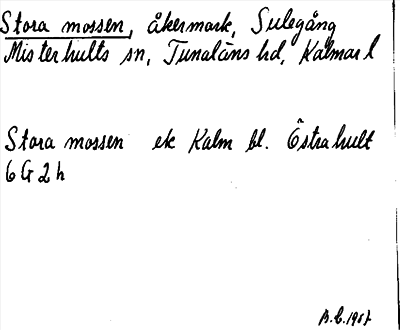 Stora mossen, åkermark, Sulegång
Misterhults sn, Tunaläns hd, Kalmar l
Stora mossen ek Kalm bl. Östrahult
6G2h
B.C. 1967